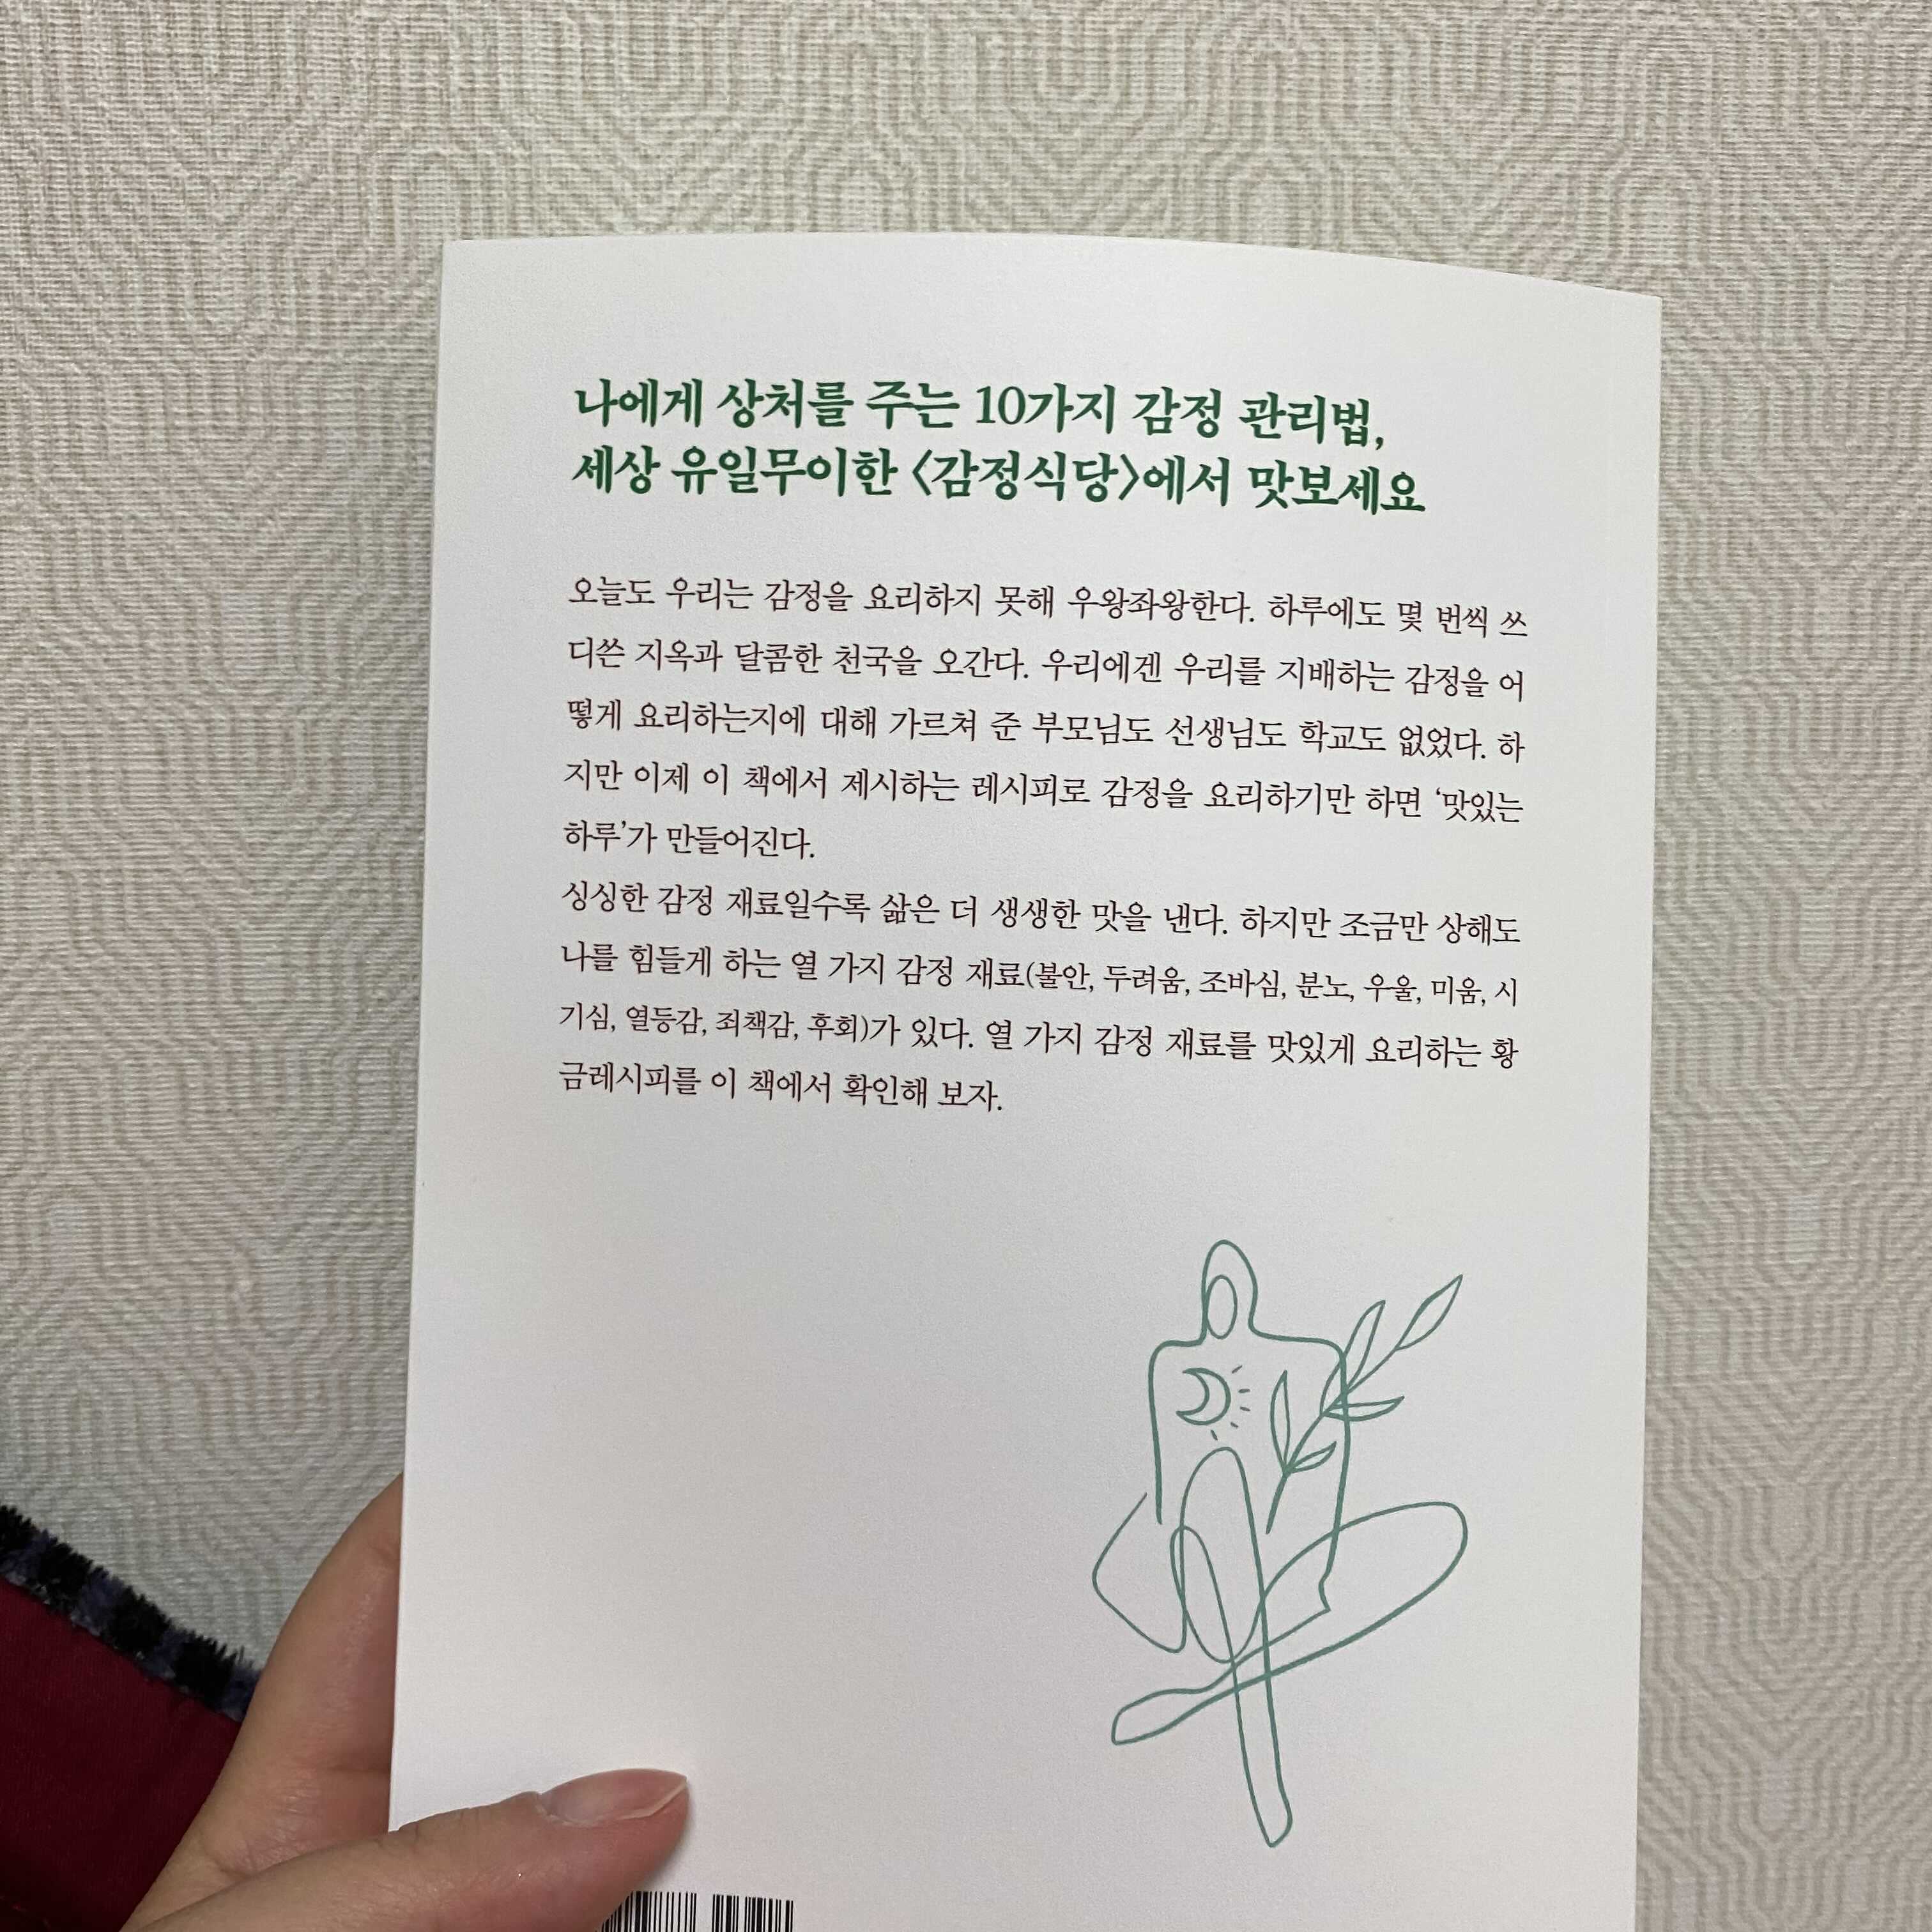 나에게 상처를 주는 10가지 감정 관리법,
세상 유일무이한 〈감정식당〉에서 맛보세요
오늘도 우리는 감정을 요리하지 못해 우왕좌왕한다. 하루에도 몇 번씩 쓰
디쓴 지옥과 달콤한 천국을 오간다. 우리에겐 우리를 지배하는 감정을 어
떻게 요리하는지에 대해 가르쳐 준 부모님도 선생님도 학교도 없었다. 하
지만 이제 이 책에서 제시하는 레시피로 감정을 요리하기만 하면 ‘맛있는
하루’가 만들어진다.
싱싱한 감정 재료일수록 삶은 더 생생한 맛을 낸다. 하지만 조금만 상해도
나를 힘들게 하는 열 가지 감정 재료(불안, 두려움, 조바심, 분노, 우울, 미움, 시
기심, 열등감, 죄책감, 후회)가 있다. 열 가지 감정 재료를 맛있게 요리하는 황
금레시피를 이 책에서 확인해 보자.